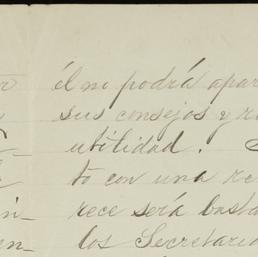 él no podrá apar
sus consejos y re
utilidad.
to con una re
rece será basta
los Secretario